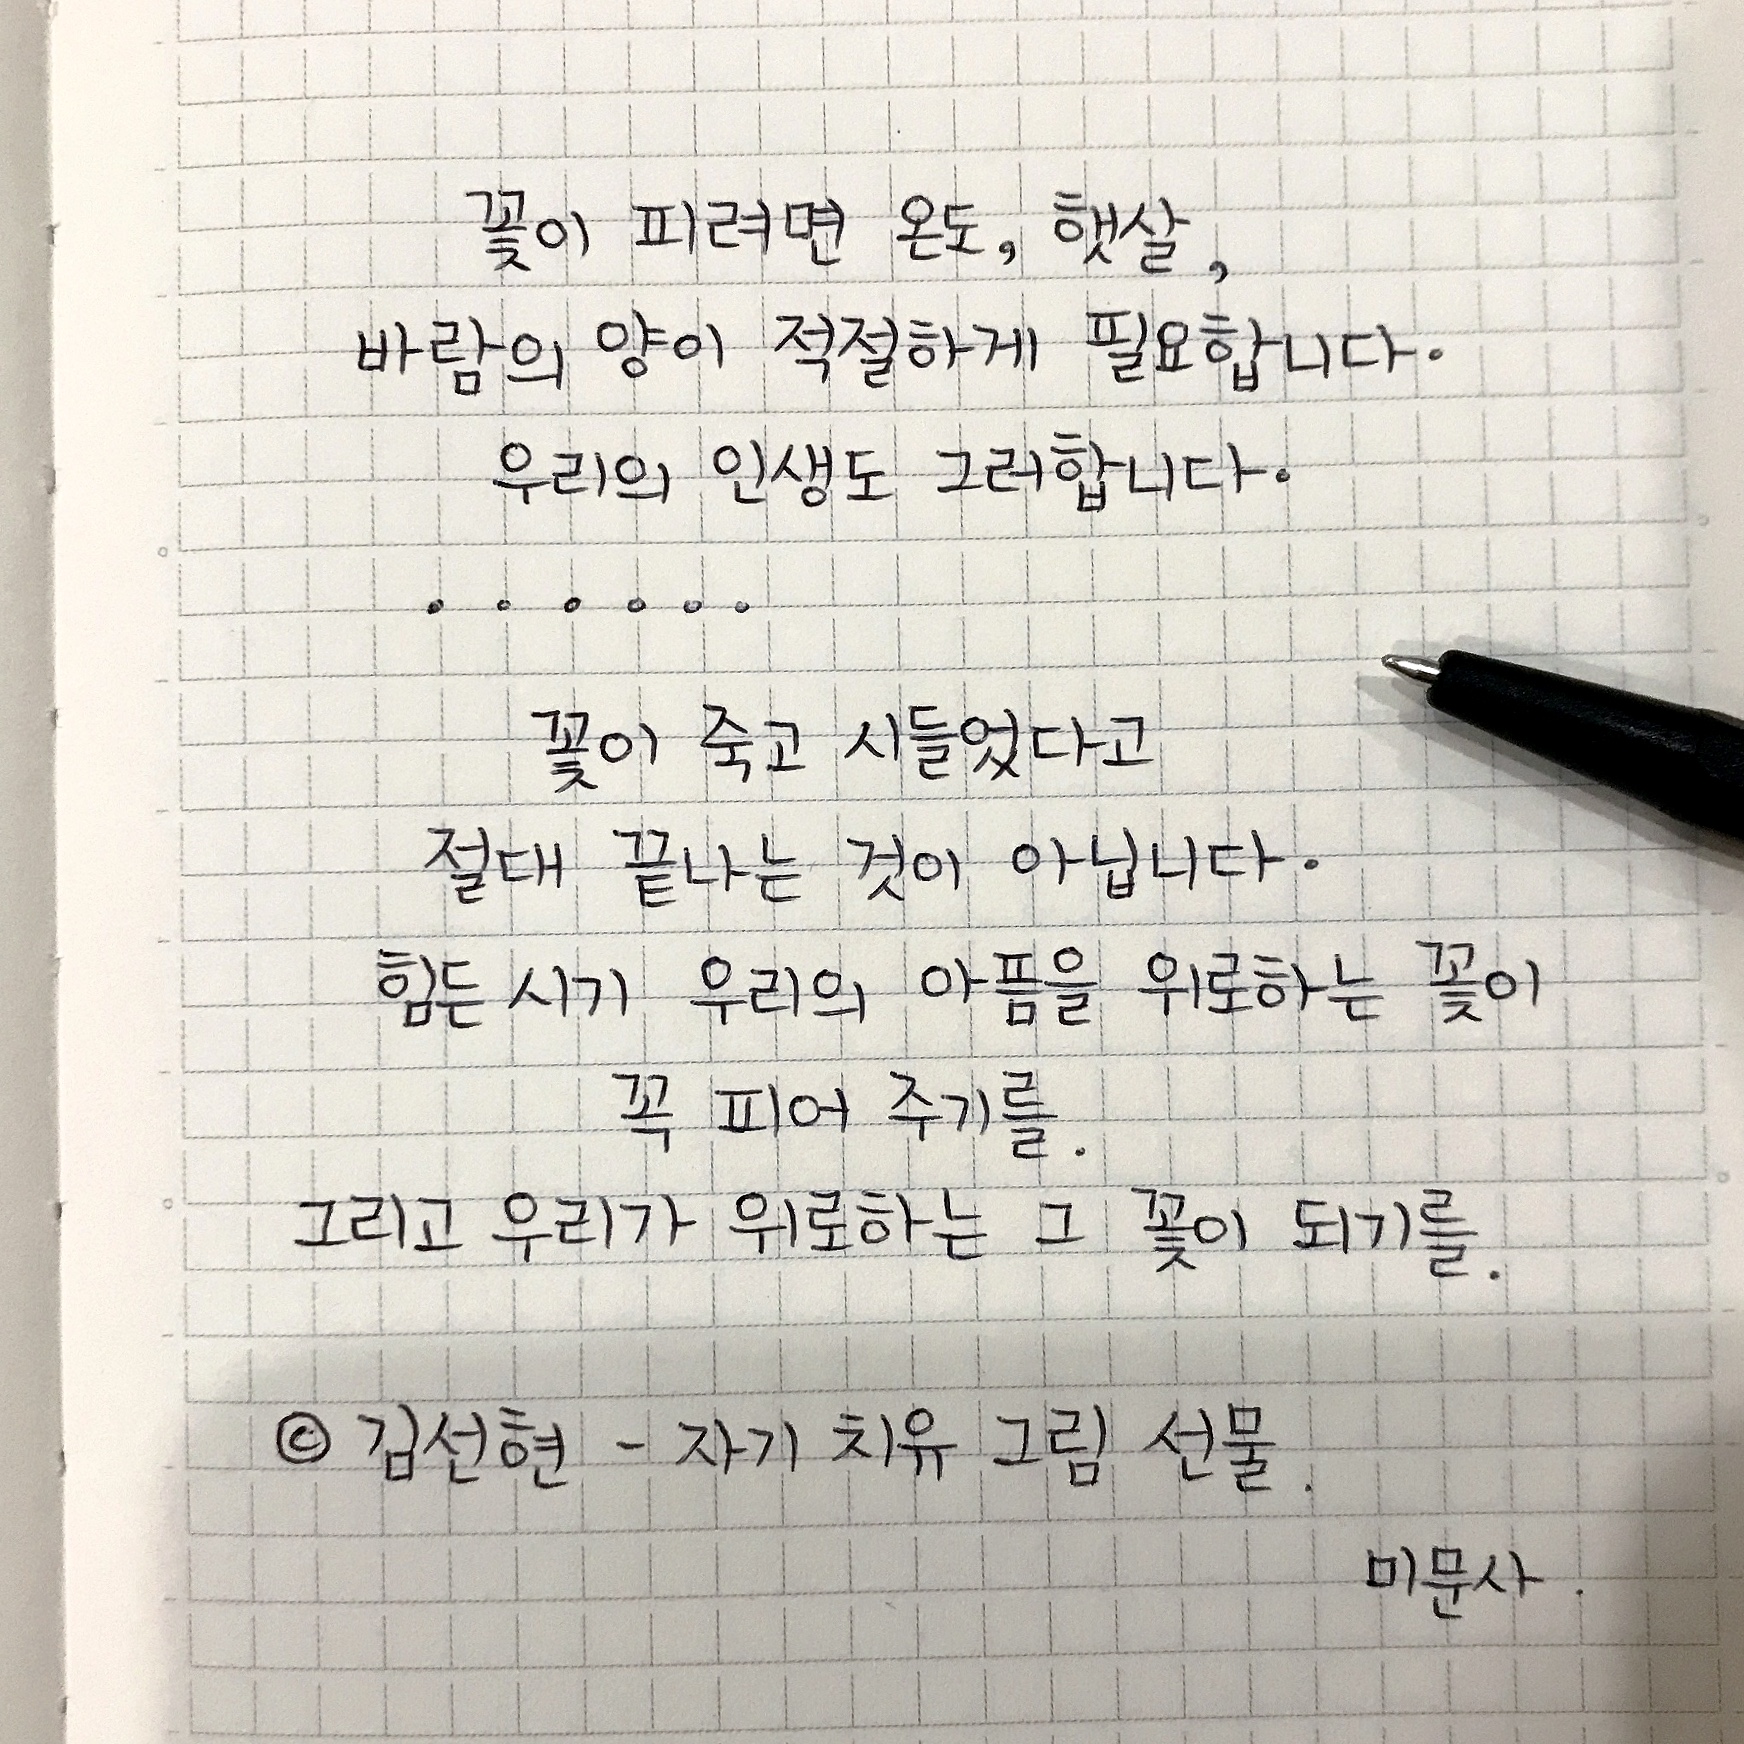 꽃이 피려면 온도, 햇살,
바람의 양이 적절하게 필요합니다.
우리의 인생도 그러합니다.
······
꽃이 죽고 시들었다고
절대 끝나는 것이 아닙니다.
힘든 시기 우리의 아픔을 위로하는 꽃이
꼭 피어 주기를.
그리고 우리가 위로하는 그 꽃이 되기를.
© 김선현 - 자기 치유 그림 선물.
미문사.